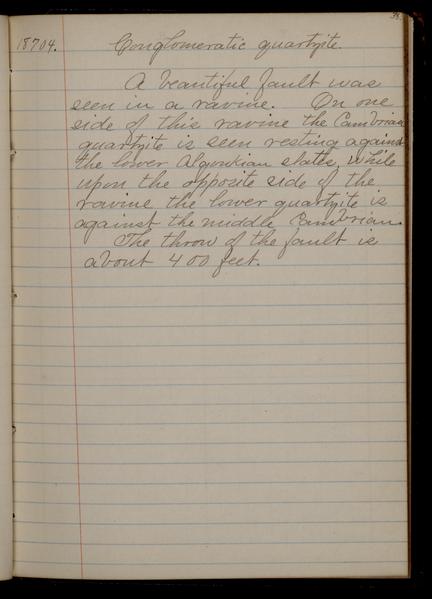 18704. Conglomeratic quartzite.
A beautiful fault was
seen in a ravine. On one
side of this ravine the Cambrian
quartzite is seen resting against
the lower Algonkian slates, while
upon the opposite side of the
ravine the lower quartzite is
against the middle Cambrian.
The throw of the fault is
about 400 feet.